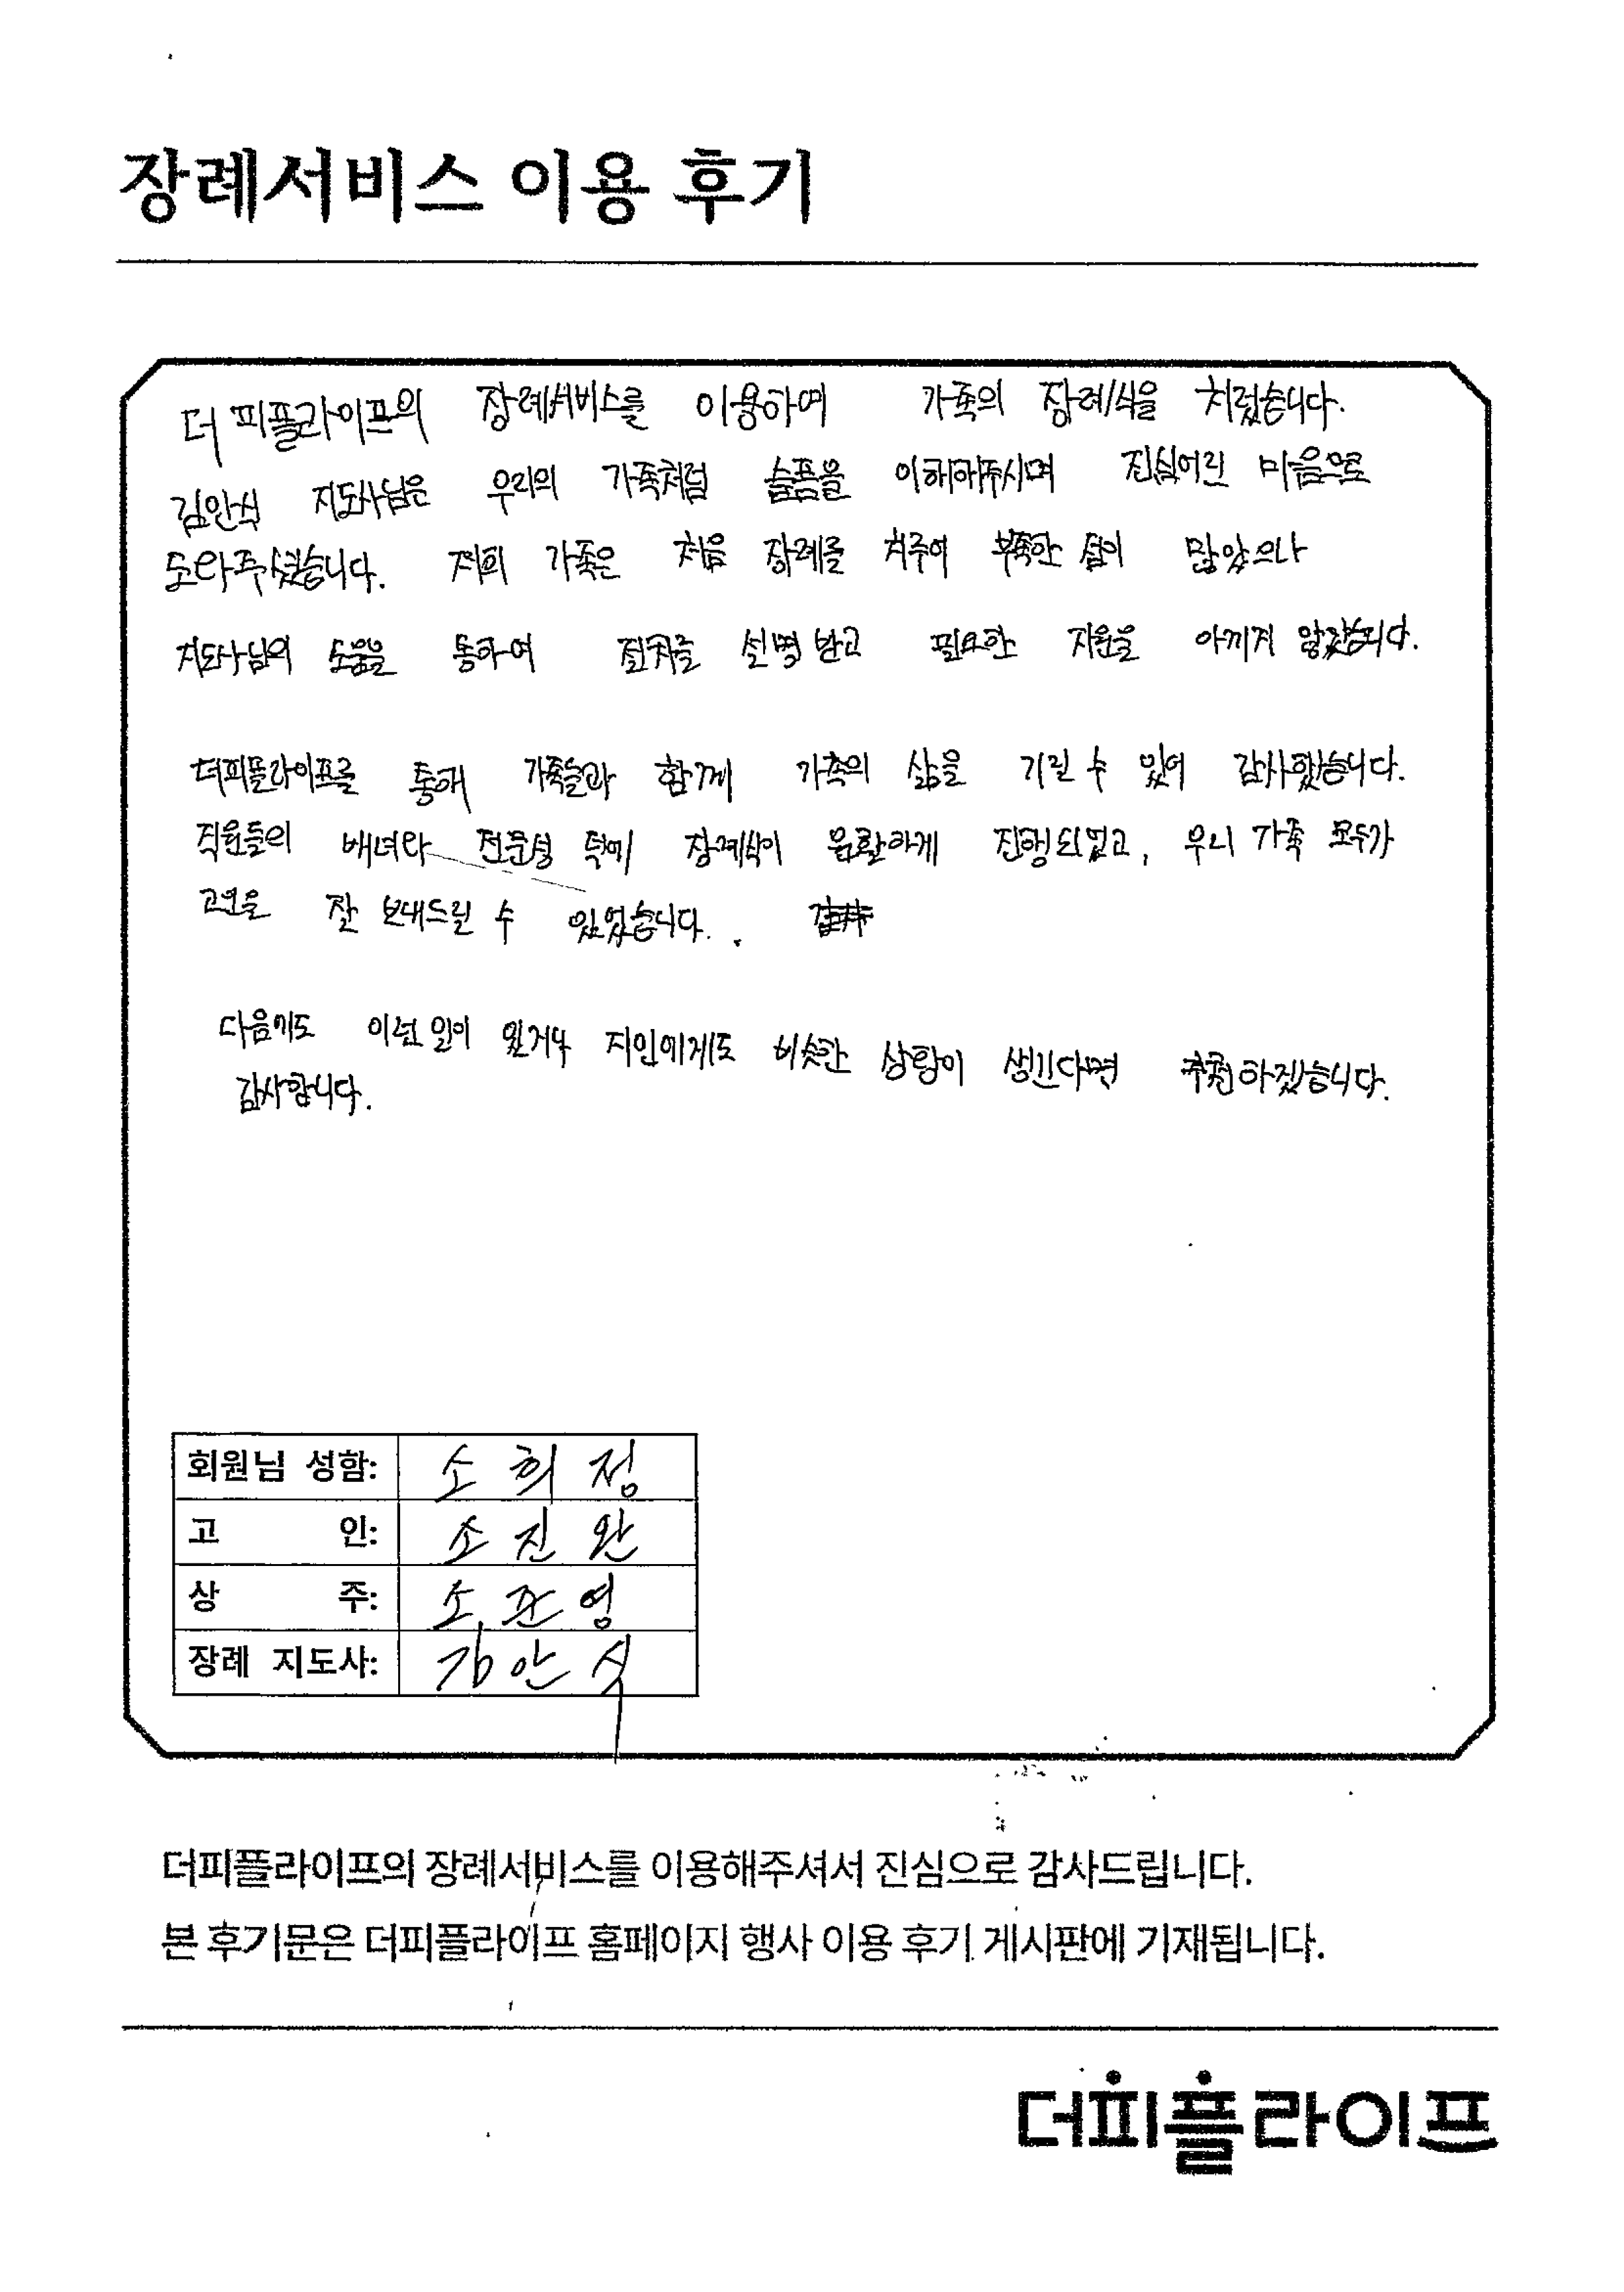 장례서비스 이용 후기
더피플라이프의 장례서비스를 이용하여 가족의 장례식을 치뤘습니다.
김안식 지도사님은 우리의 가족처럼 슬픔을 이해해주시며 진심어린 마음으로
도와주셨습니다. 저희 가족은 처음 장례를 치루어 부족한 점이 많았으나
지도사님의 도움을 통하여 절차를 설명 받고 필요한 지원을 아끼지 않았습니다.
더피플라이프를 통해 가족들과 함께 가족의 삶을 기릴 수 있어 감사했습니다.
직원들의 배려와 전문성 덕에 장례식이 원활하게 진행되었고, 우리 가족 모두가
고인을 잘 보내드릴 수 있었습니다.
다음에도 이런 일이 있거나 지인에게도 비슷한 상황이 생긴다면 추천하겠습니다.
감사합니다.
회원님 성함: 소희정
고 인: 소진완
상 주: 소준영
장례 지도사: 김안식
더피플라이프의 장례서비스를 이용해주셔서 진심으로 감사드립니다.
본 후기문은 더피플라이프 홈페이지 행사 이용 후기 게시판에 기재됩니다.
더피플라이프